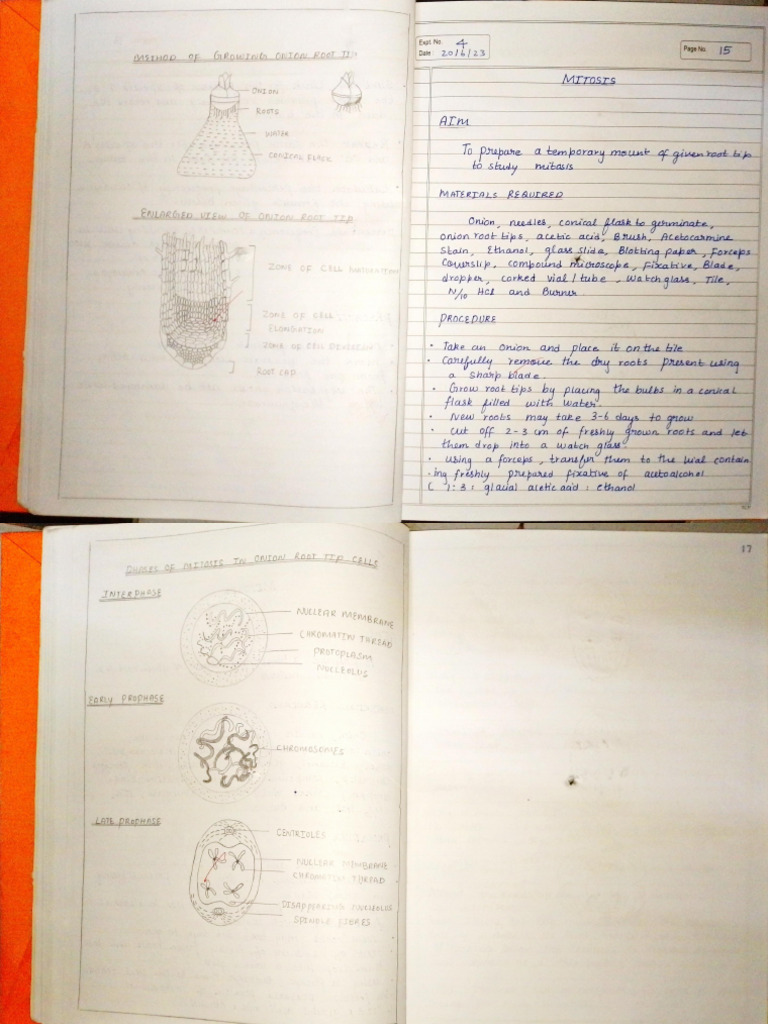 METHOD OF GROWING ONION ROOT TIP
ONION
ROOTS
WATER
CONICAL FLASK
ENLARGED VIEW OF ONION ROOT TIP
ZONE OF CELL MATURATION
ZONE OF CELL
ELONGATION
ZONE OF CELL DIVISION
ROOT CAP
Expt. No. 4
Date 20/6/23
Page No. 15
MITOSIS
AIM
To prepare a temporary mount of given root tip
to study mitosis
MATERIALS REQUIRED
Onion, needles, conical flask to germinate,
onion root tips, acetic acid, Brush, Acetocarmine
Stain, Ethanol, glass slide, Blotting paper, Forceps
Coverslip, compound microscope, Fixative, Blade,
dropper, corked vial/tube, watch glass, Tile,
N/10 Hcl and Burner.
PROCEDURE
• Take an onion and place it on the tile
• Carefully remove the dry roots present using
a sharp blade.
• Grow root tips by placing the bulbs in a conical
flask filled with water.
• New roots may take 3-6 days to grow
• cut off 2-3 cm of freshly grown roots and let
them drop into a watch glass.
• using a forceps, transfer them to the vial contain
-ing freshly prepared fixative of acetoalcohol
( 1:3 : glacial acetic acid : ethanol
PHASES OF MITOSIS IN ONION ROOT TIP CELLS
INTERPHASE
NUCLEAR MEMBRANE
CHROMATIN THREAD
PROTOPLASM
NUCLEOLUS
EARLY PROPHASE
CHROMOSOMES
LATE PROPHASE
CENTRIOLES
NUCLEAR MEMBRANE
CHROMATIN THREAD
DISAPPEARING NUCLEOLUS
SPINDLE FIERBS
17